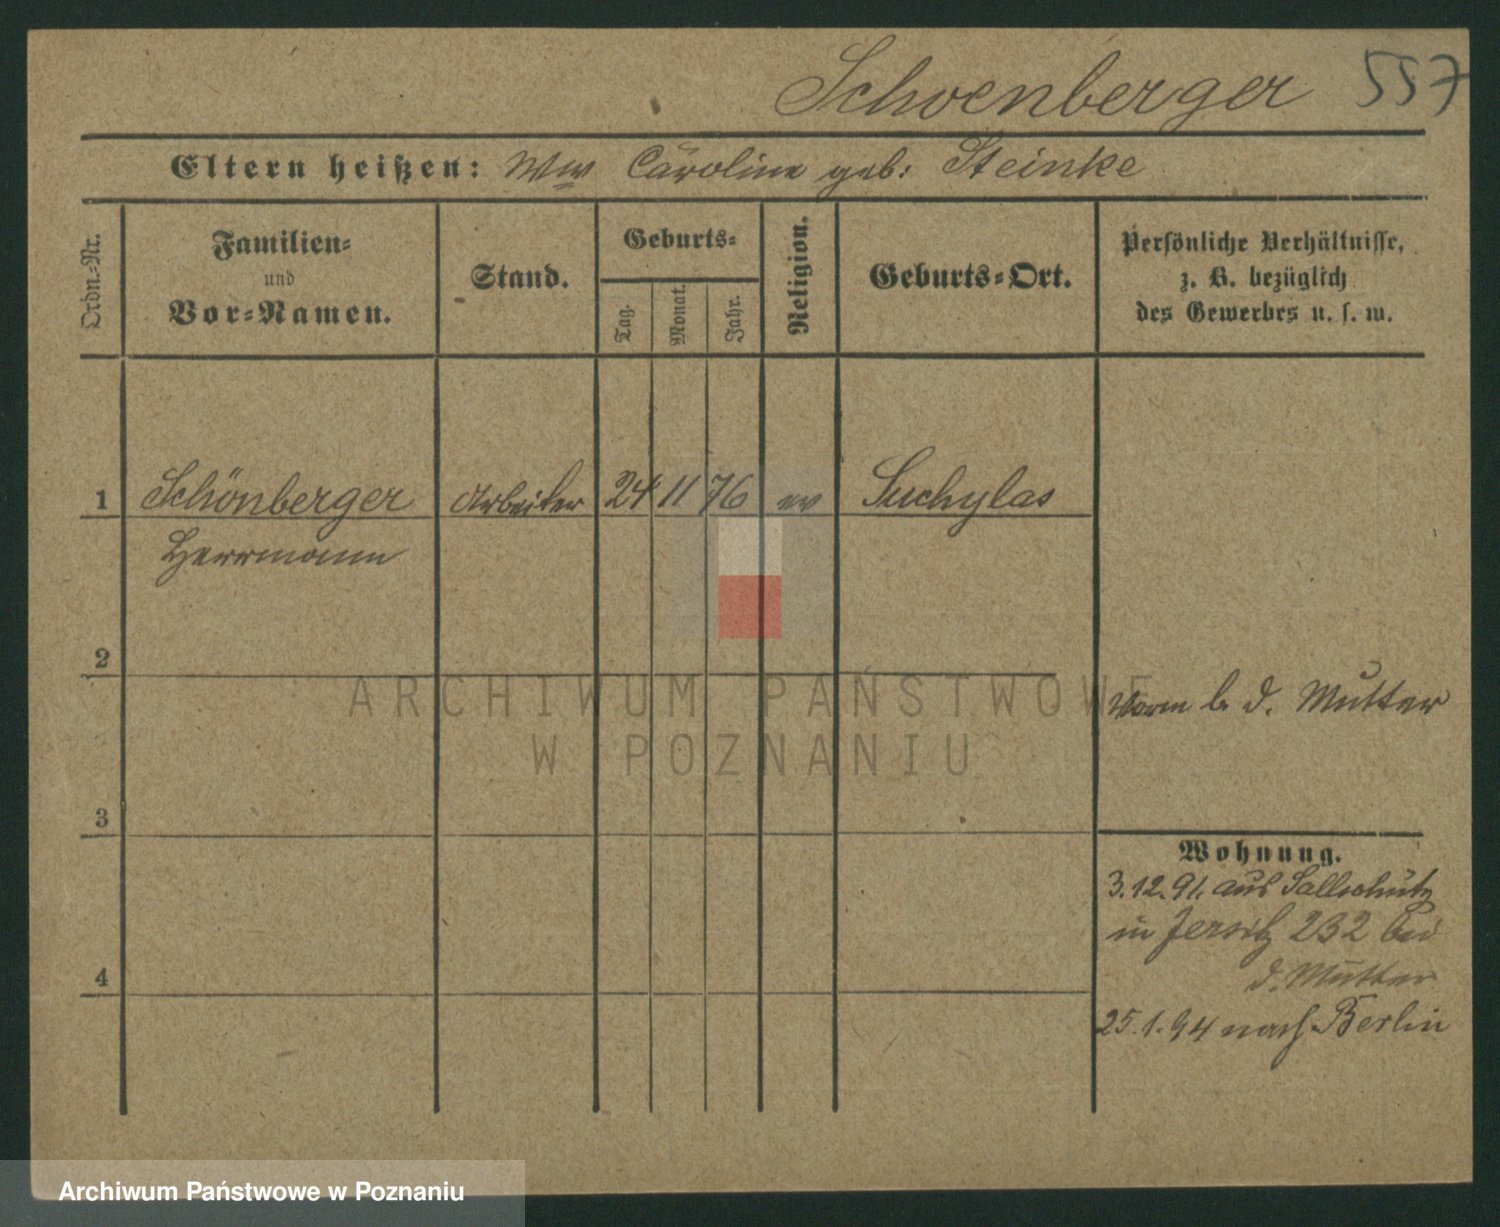 Schoenberger 557
Eltern heißen: Ww Caroline geb: Steinke
Ordn.-Nr.
Familien-
und
Vor-Namen.
Stand.
Geburts-
Tag.
Monat.
Jahr.
Religion.
Geburts-Ort.
Persönliche Verhältnisse,
z. B. bezüglich
des Gewerbes u. s. w.
1 Schönberger Arbeiter 24 11 76 ev Suchylas
Herrmann
2
b. d. Mutter
3
Wohnung.
3.12.91. aus
in Jersitz 232 bei
d. Mutter
4
25.1.94 nach Berlin
ARCHIWUM PAŃSTWOWE
W POZNANIU
Archiwum Państwowe w Poznaniu